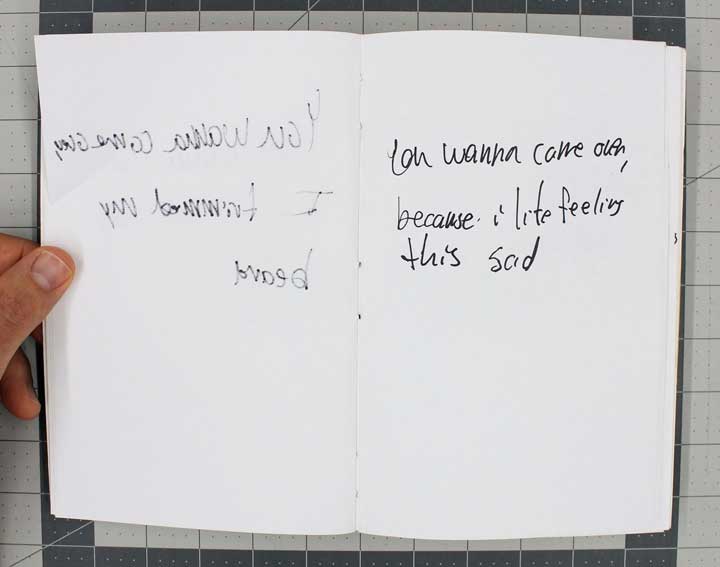 You wanna come over
I trimmed my
beard
You wanna come over,
because i like feeling
this sad